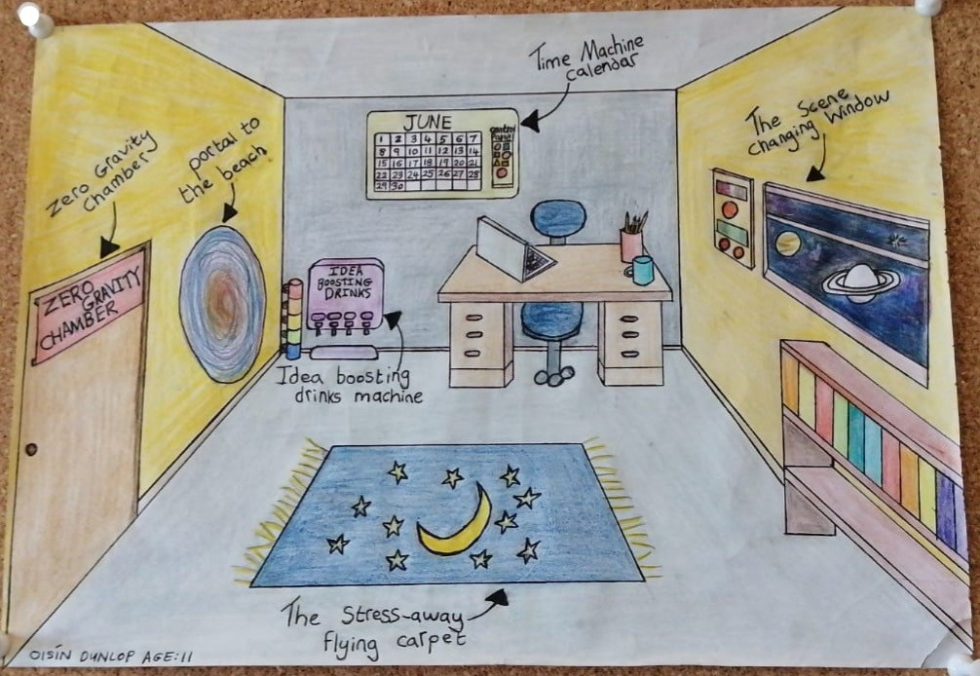 Time Machine
calendar
The Scene
changing Window
Zero Gravity
chamber
portal to
the beach
JUNE
control
Panel
1 2 3 4 5 6 7
8 9 10 11 12 13 14
15 16 17 18 19 20 21
22 23 24 25 26 27 28
29 30
ZERO
GRAVITY
CHAMBER
IDEA
BOOSTING
DRINKS
Idea boosting
drinks machine
The Stress-away
flying carpet
OISÍN DUNLOP AGE:11